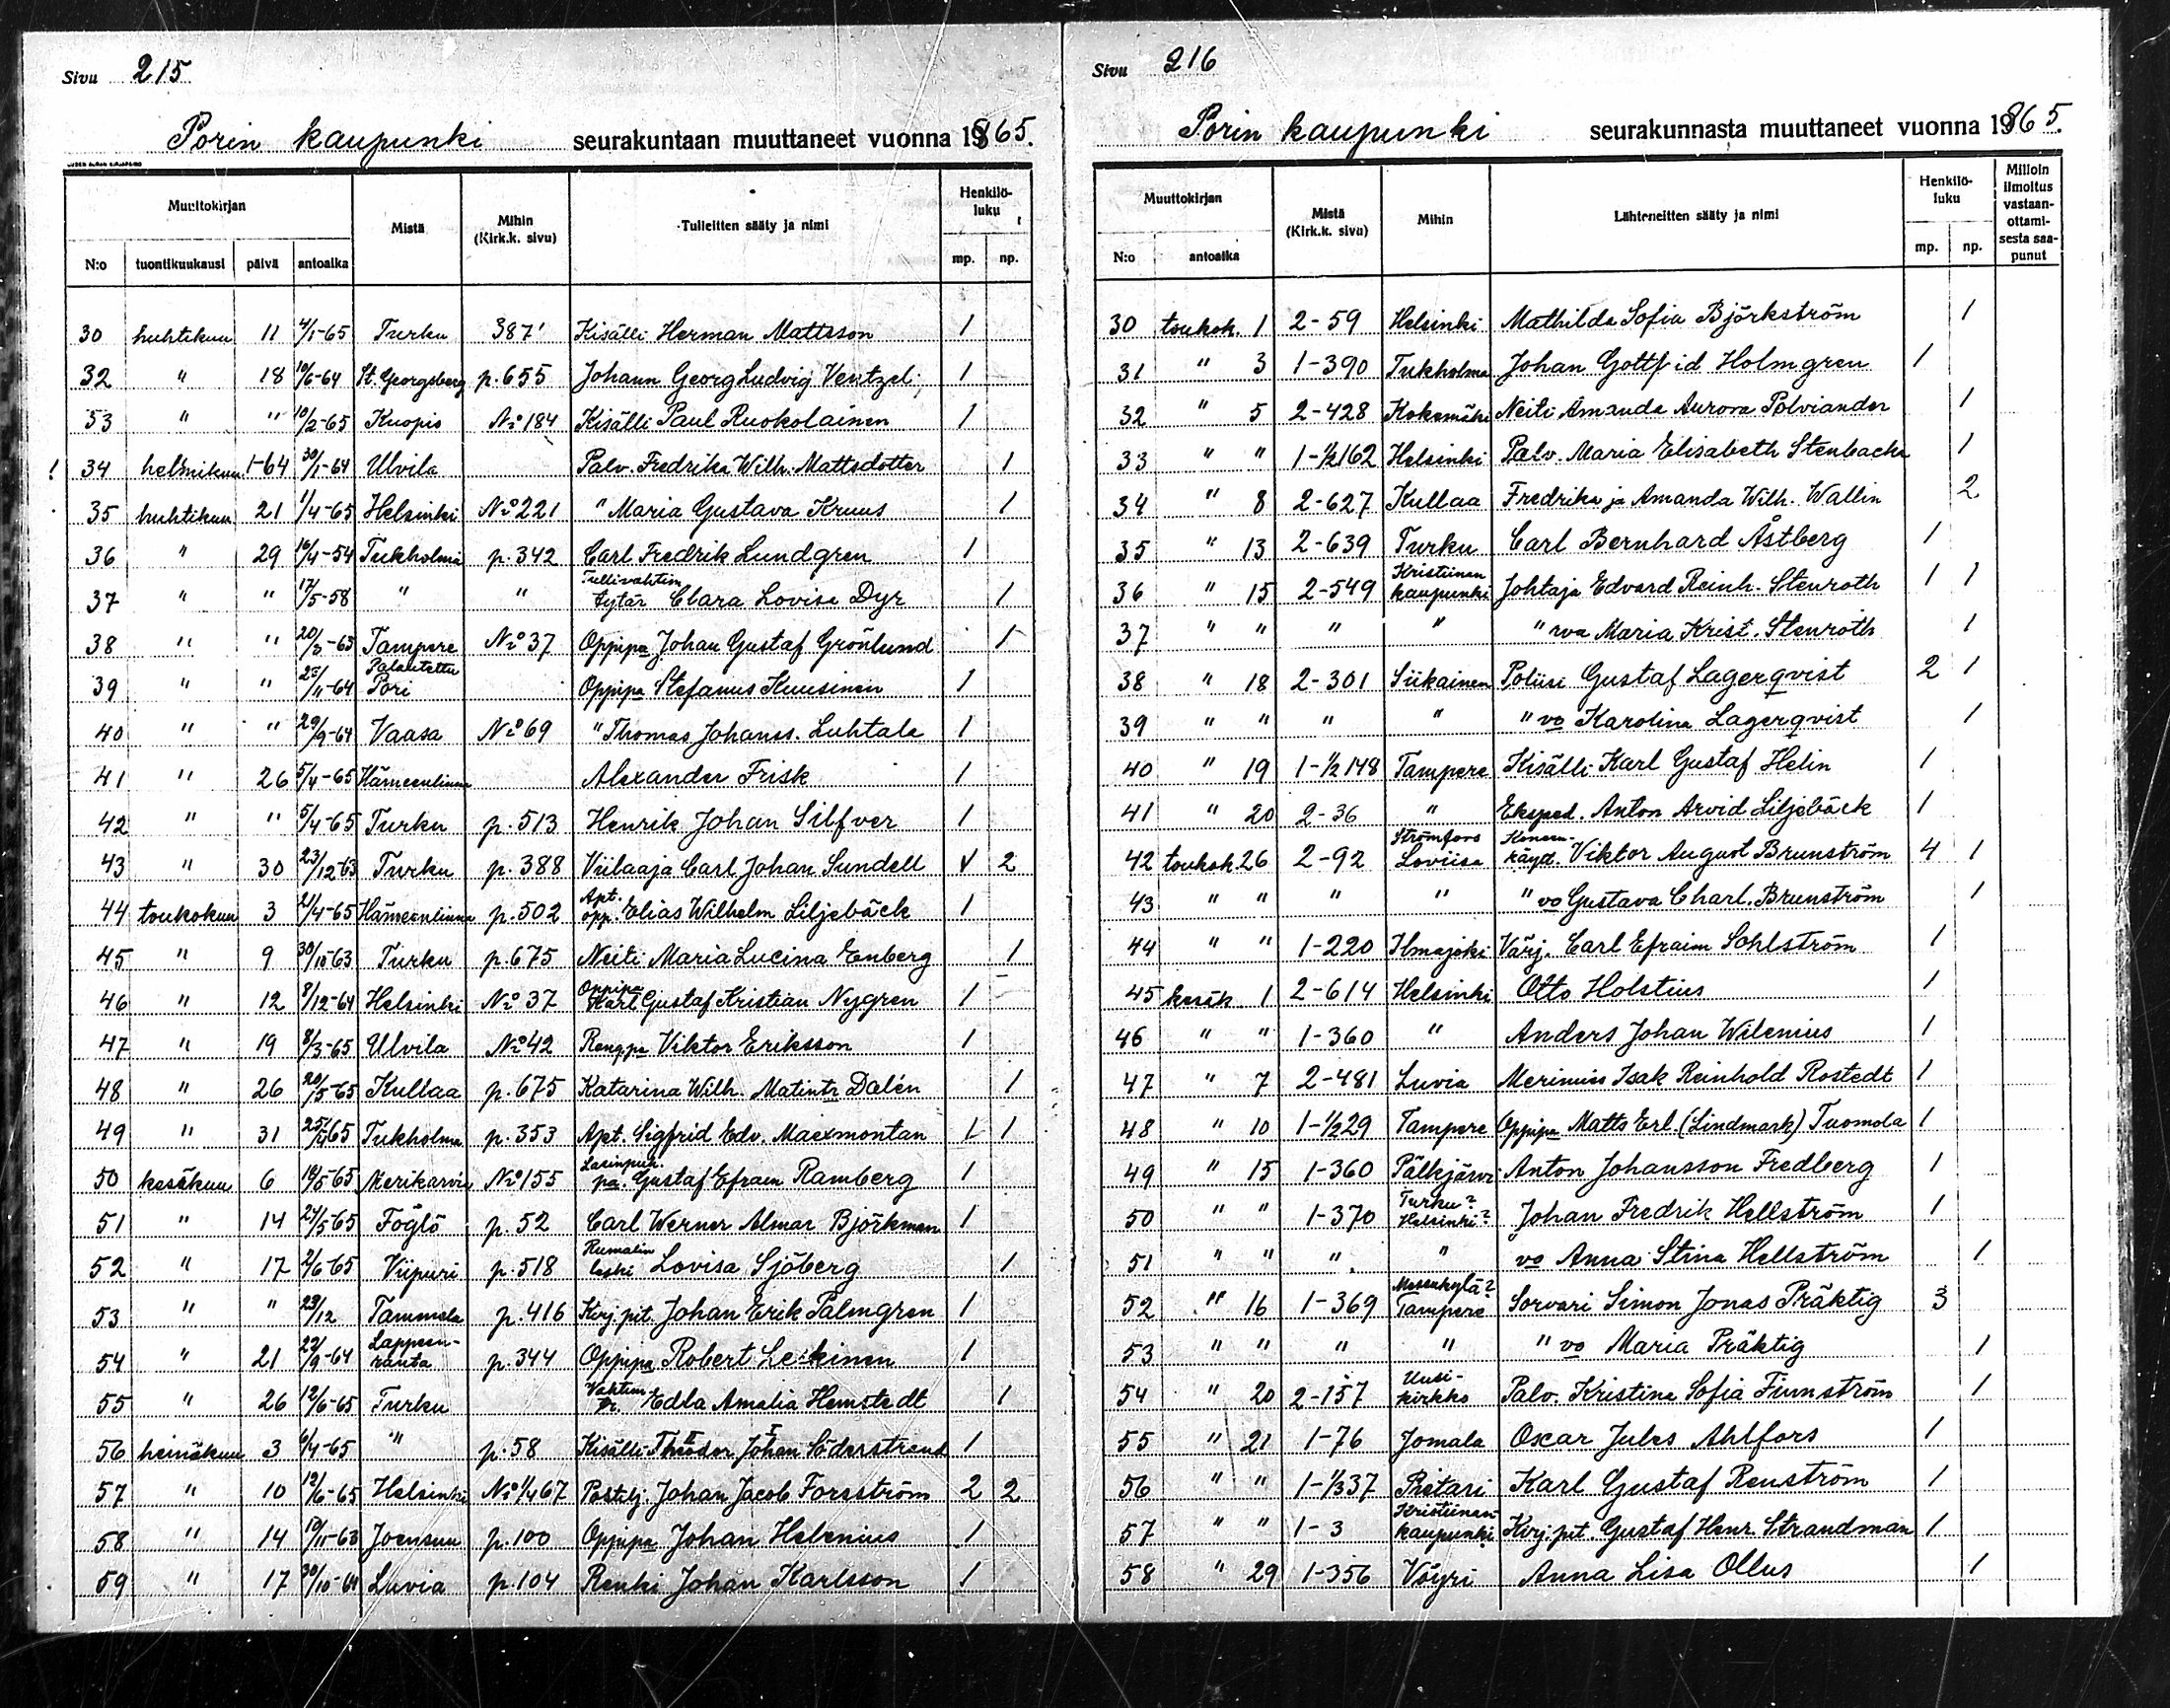 Sivu 215
Porin kaupunki seurakuntaan muuttaneet vuonna 1865.
Muuttokirjan Mistä Mihin (Kirk.k. sivu) Tulleitten sääty ja nimi Henkilö-luku
N:o tuontikuukausi päivä antoaika mp. np.
30 huhtikuu 11 4/1-65 Turku 387 Kisälli Herman Mattsson 1
32 " 18 10/6-64 St. Georgsberg p.655 Johann Georg Ludvig Ventzel 1
53 " " 10/2-65 Kuopio No 184 Kisälli Paul Ruokolainen 1
! 34 helmikuu 1-64 30/1-64 Ulvila Palv. Fredrika Wilh. Mattsdotter 1
35 huhtikuu 21 1/4-65 Helsinki No 221 " Maria Gustava Kruus 1
36 " 29 16/4-54 Tukholma p.342 Carl Fredrik Lundgren 1
37 " " 17/5-58 " " Tullivahtim. tytär Clara Lovisa Dyr 1
38 " " 20/3-63 Tampere No 37 Oppipa Johan Gustaf Grönlund 1
39 " " 25/11-64 Palautettu Pori Oppipa Stefanus Kuusinen 1
40 " " 29/9-64 Vaasa No 69 " Thomas Johanss. Luhtala 1
41 " 26 5/4-65 Hämeenlinna Alexander Frisk 1
42 " " 5/4-65 Turku p.513 Henrik Johan Silfver 1
43 " 30 23/12-63 Turku p.388 Viilaaja Carl Johan Sundell 1 2
44 toukokuu 3 21/4-65 Hämeenlinna p.502 Apt. opp. Elias Wilhelm Liljebäck 1
45 " 9 30/10-63 Turku p.675 Neiti Maria Lucina Enberg 1
46 " 12 8/12-64 Helsinki No 37 Oppipa Karl Gustaf Kristian Nygren 1
47 " 19 8/3-65 Ulvila No 42 Rengpa Viktor Eriksson 1
48 " 26 20/5-65 Kullaa p.675 Katarina Wilh. Matintr Dalén 1
49 " 31 25/4 65 Tukholma p.353 Apt. Sigfrid Edv. Maexmontan 1 1
50 kesäkuu 6 18/5-65 Merikarvia No 155 Lasinpuh. pa. Gustaf Efraem Ramberg 1
51 " 14 24/5-65 Föglö p.52 Carl Werner Almar Björkman 1
52 " 17 2/6-65 Viipuri p.518 Rumalin leski Lovisa Sjöberg 1
53 " " 23/12 Tammela p.416 Kirj.pit. Johan Erik Palmgren 1
54 " 21 22/9-64 Lappeen-ranta p.344 Oppipa Robert Leskinen 1
55 " 26 12/6-65 Turku Vahtim. tr. Edla Amalia Hemstedt 1
56 heinäkuu 3 6/4-65 " p.58 Kisälli Theodor II Johan I Söderstrand 1
57 " 10 12/6-65 Helsinki No 1/4 67 Postilj. Johan Jacob Forsström 2 2
58 " 14 12/11-63 Joensuu p.100 Oppipa Johan Helenius 1
59 " 17 30/10-64 Luvia p.104 Renki Johan Karlsson 1
Sivu 216
Porin kaupunki seurakunnasta muuttaneet vuonna 1865.
Muuttokirjan Mistä (Kirk.k. sivu) Mihin Lähteneitten sääty ja nimi Henkilö-luku Milloin ilmoitus vastaan-ottami-sesta saa-punut
N:o antoaika mp. np.
30 toukok. 1 2-59 Helsinki Mathilda Sofia Björkström 1
31 " 3 1-390 Tukholma Johan Gottfid Holmgren 1
32 " 5 2-428 Kokemäki Neiti Amanda Aurora Polviander 1
33 " " 1-1/2 162 Helsinki Palv. Maria Elisabeth Stenbacka 1
34 " 8 2-627 Kullaa Fredrika ja Amanda Wilh. Wallin 2
35 " 13 2-639 Turku Carl Bernhard Åstberg 1
36 " 15 2-549 Kristiinan kaupunki Johtaja Edvard Reinh. Stenroth 1 1
37 " " " " " wa Maria Krist. Stenroth 1
38 " 18 2-301 Siikainen Poliisi Gustaf Lagerqvist 2 1
39 " " " " " vo Karolina Lagerqvist 1
40 " 19 1-1/2 148 Tampere Kisälli Karl Gustaf Helin 1
41 " 20 2-36 " Eksped. Anton Arvid Liljebäck 1
42 toukok 26 2-92 Strömfors Loviisa Koneen-käyt. Viktor August Brunström 4 1
43 " " " " " vo Gustava Charl. Brunström 1
44 " " 1-220 Ilmajoki Värj. Carl Efraim Sohlström 1
45 kesäk 1 2-614 Helsinki Otto Holstius 1
46 " " 1-360 " Anders Johan Wilenius 1
47 " 7 2-481 Luvia Merimies Isak Reinhold Rostedt 1
48 " 10 1-1/2 29 Tampere Oppipa Matts Erl. (Lindmark) Tuomola 1
49 " 15 1-360 Pälkjärvi Anton Johansson Fredberg 1
50 " " 1-370 Turku? Helsinki? Johan Fredrik Hellström 1
51 " " " " vo Anna Stina Hellström 1
52 " 16 1-369 Messukylä? Tampere Sorvari Simon Jonas Präktig 3
53 " " " " " vo Maria Präktig 1
54 " 20 2-157 Uusi-kirkko Palv. Kristina Sofia Finnström 1
55 " 21 1-76 Jomala Oscar Jules Ahlfors 1
56 " " 1-1/3 37 Pietari Karl Gustaf Renström 1
57 " " 1-3 Kristiinan-kaupunki Kirj.pit. Gustaf Henr. Strandman 1
58 " 29 1-356 Vöyri Anna Lisa Ollus 1